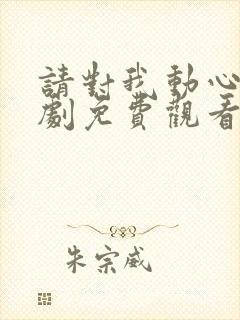 請對我動心
劇免費觀看
朱宗威